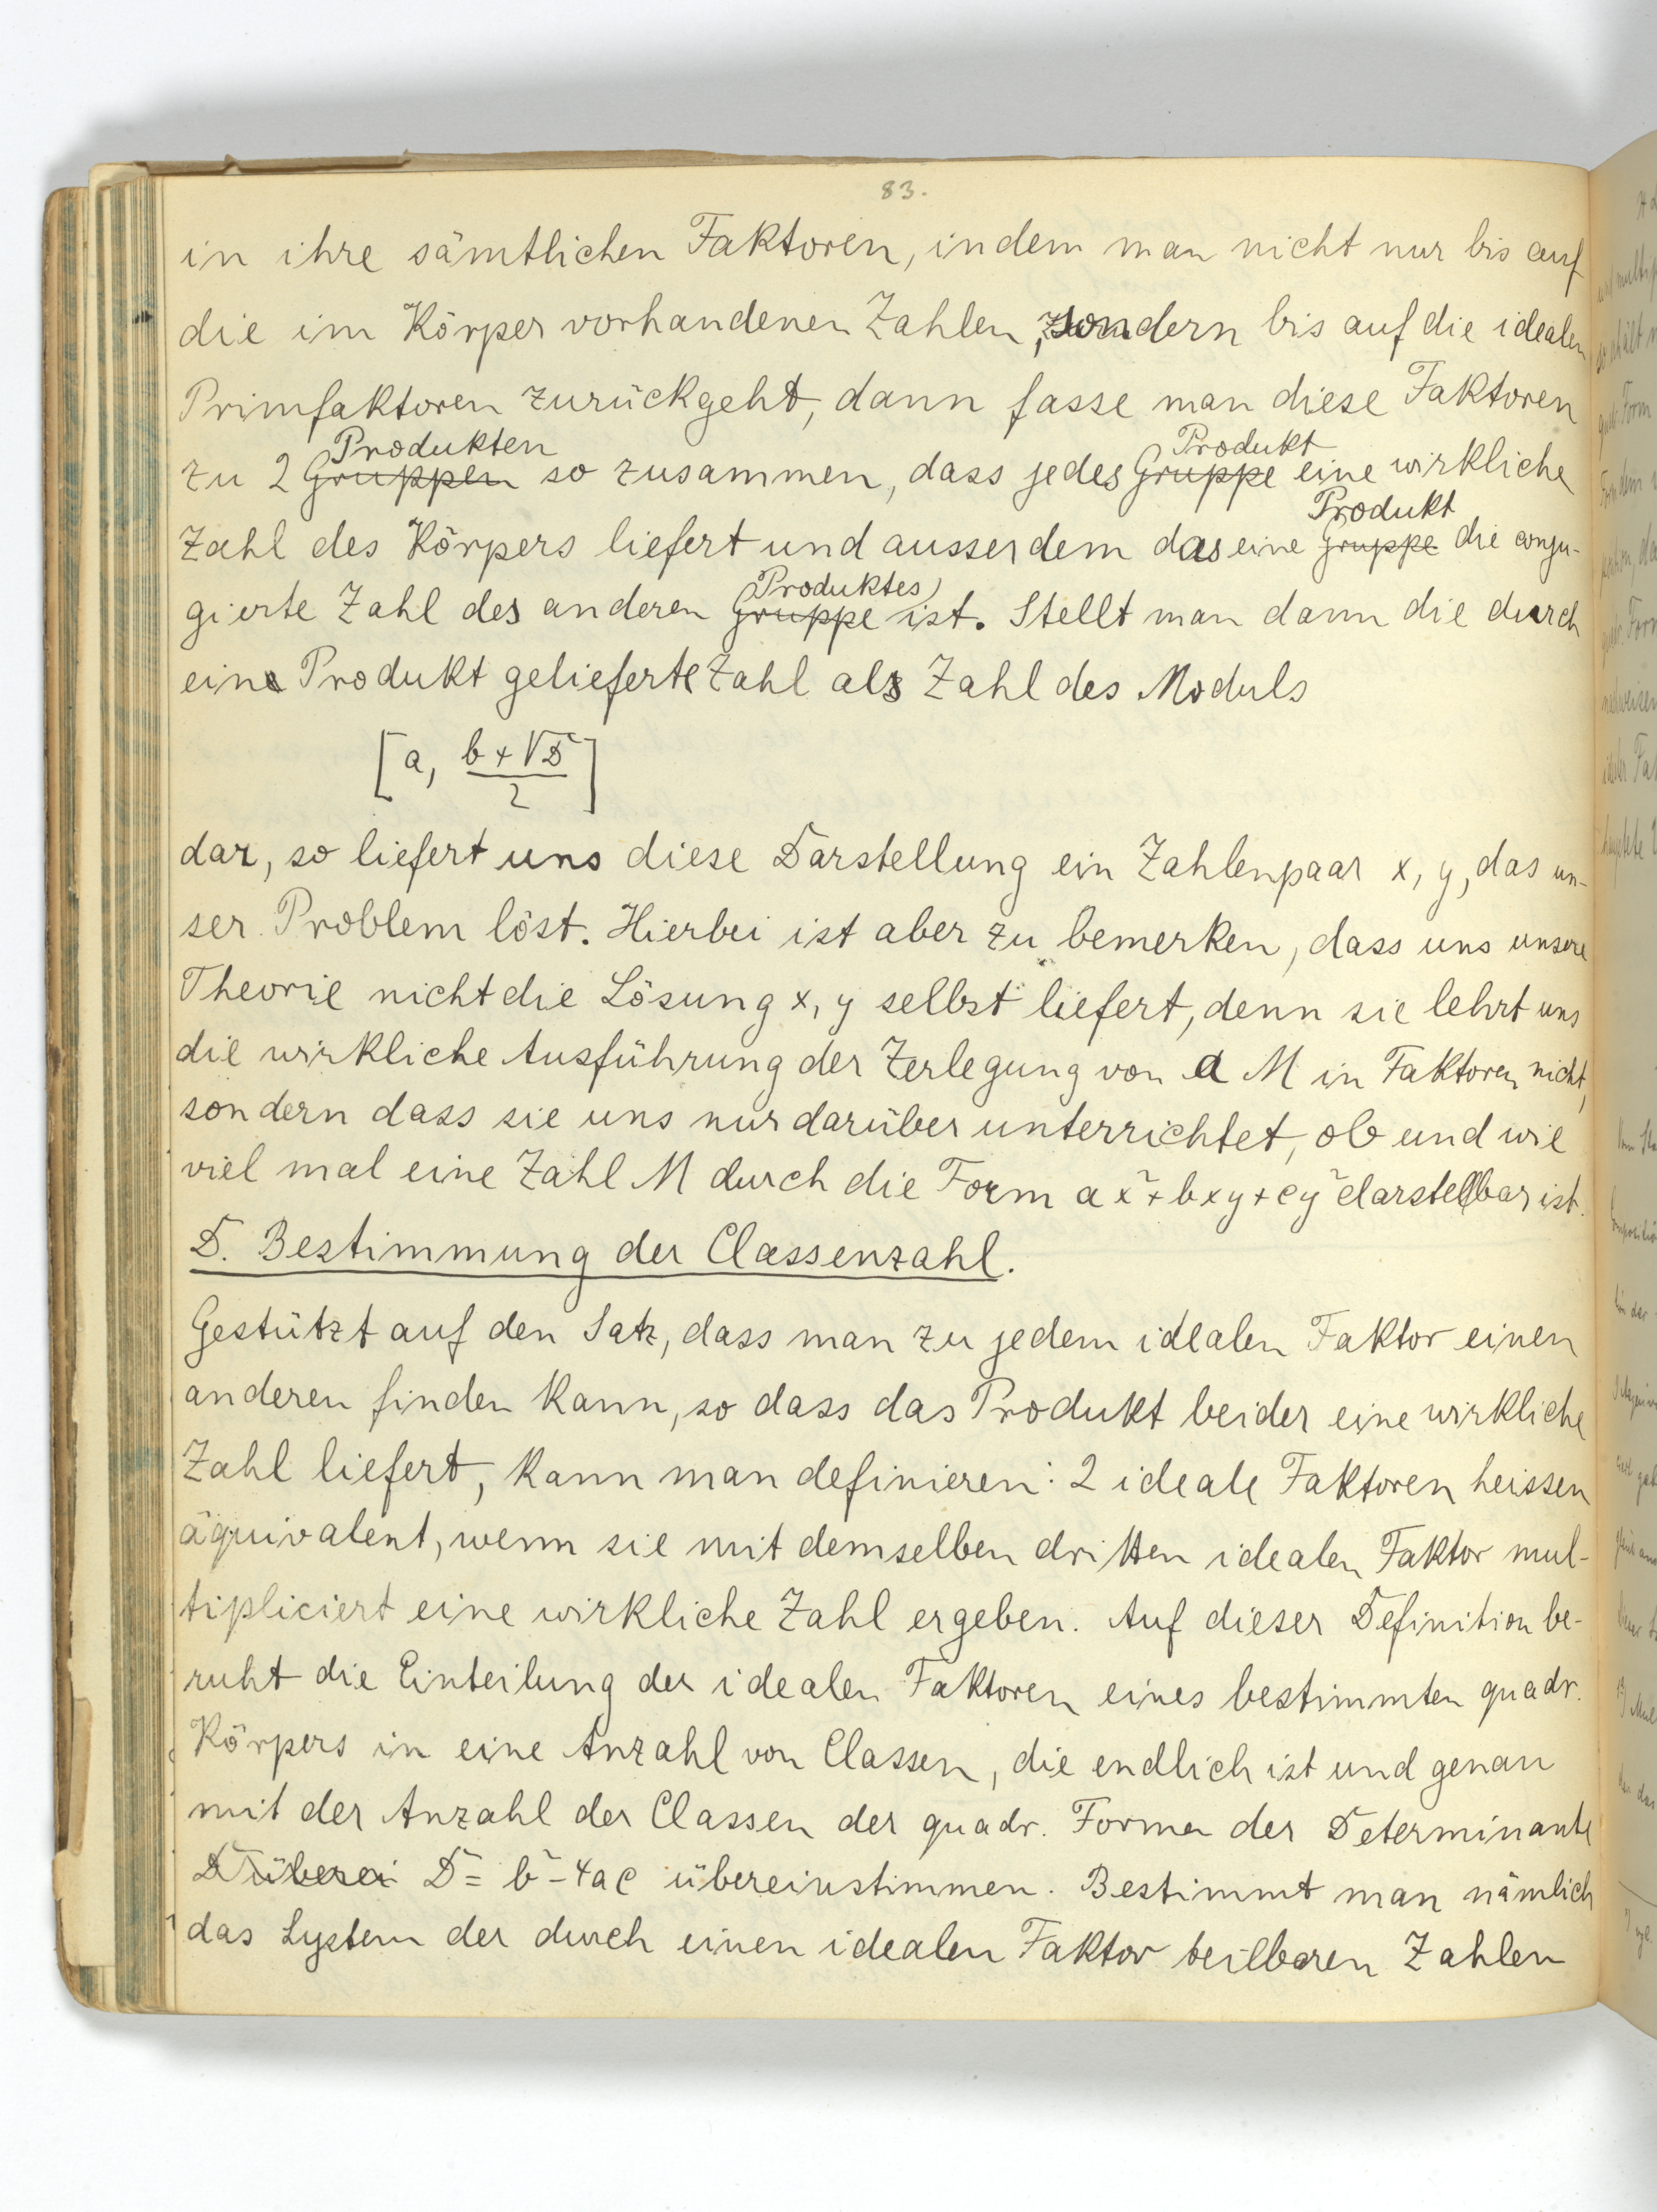 83.
in ihre sämtlichen Faktoren, indem man nicht nur bis auf
die im Körper vorhandenen Zahlen, sondern bis auf die idealen
Primfaktoren zurückgeht, dann fasse man diese Faktoren
Produkten Produkt
zu 2 Gruppen so zusammen, dass jedes Gruppe eine wirkliche
Produkt
Zahl des Körpers liefert und ausserdem das eine Gruppe die conju-
Produktes
gierte Zahl des anderen Gruppe ist. Stellt man dann die durch
ein Produkt gelieferte Zahl als Zahl des Moduls
[a, (b+√D)/2]
dar, so liefert uns diese Darstellung ein Zahlenpaar x, y, das un-
ser Problem löst. Hierbei ist aber zu bemerken, dass uns unsere
Theorie nicht die Lösung x, y selbst liefert, denn sie lehrt uns
die wirkliche Ausführung der Zerlegung von a M in Faktoren nicht,
sondern dass sie uns nur darüber unterrichtet, ob und wie
viel mal eine Zahl M durch die Form ax²+bxy+cy² darstellbar ist.
D. Bestimmung der Classenzahl.
Gestützt auf den Satz, dass man zu jedem idealen Faktor einen
anderen finden kann, so dass das Produkt beider eine wirkliche
Zahl liefert, kann man definieren: 2 ideale Faktoren heissen
äquivalent, wenn sie mit demselben dritten idealen Faktor mul-
tipliciert eine wirkliche Zahl ergeben. Auf dieser Definition be-
ruht die Einteilung der idealen Faktoren eines bestimmten quadr.
Körpers in eine Anzahl von Classen, die endlich ist und genau
mit der Anzahl der Classen der quadr. Formen der Determinante
D überei D = b²-4ac übereinstimmen. Bestimmt man nämlich
das System der durch einen idealen Faktor teilbaren Zahlen